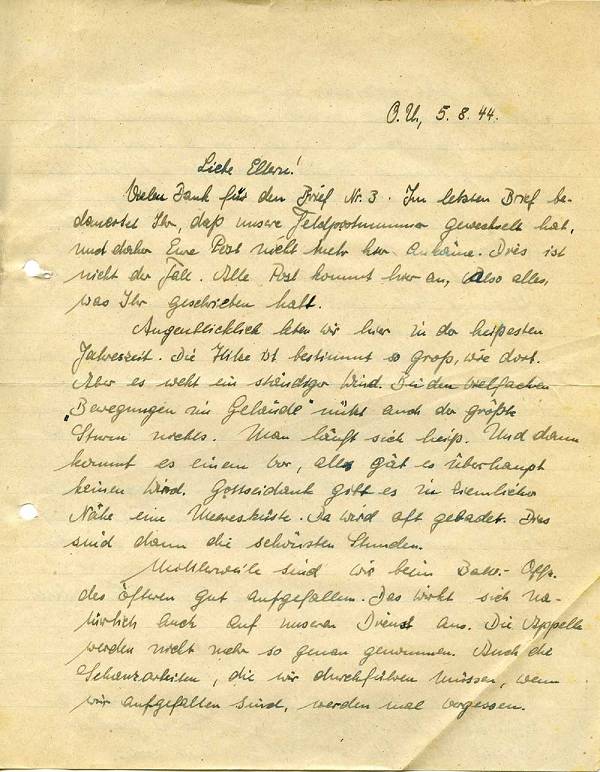 O.U., 5.8.44.
Liebe Eltern!
Vielen Dank für den Brief Nr. 3. Im letzten Brief be-
dauertet Ihr, daß unsere Feldpostnummer gewechselt hat,
und daher Eure Post nicht mehr hier ankäme. Dies ist
nicht der Fall. Alle Post kommt hier an, also alles,
was Ihr geschrieben habt.
Augenblicklich leben wir hier in der heißesten
Jahreszeit. Die Hitze ist bestimmt so groß, wie dort.
Aber es weht ein ständiger Wind. Bei den vielfachen
„Bewegungen im Gelände" nützt auch der größte
Sturm nichts. Man läuft sich heiß. Und dann
kommt es einem vor, als gäb es überhaupt
keinen Wind. Gottseidank gibt es in ziemlicher
Nähe eine Meeresküste. Da wird oft gebadet. Dies
sind dann die schönsten Stunden.
Mittlerweile sind wir beim Offz.
des öfteren gut aufgefallen. Das wirkt sich na-
türlich auch auf unseren Dienst aus. Die Appelle
werden nicht mehr so genau genommen. Auch die
Schanzarbeiten, die wir durchführen müssen, wenn
wir aufgefallen sind, werden mal vergessen.